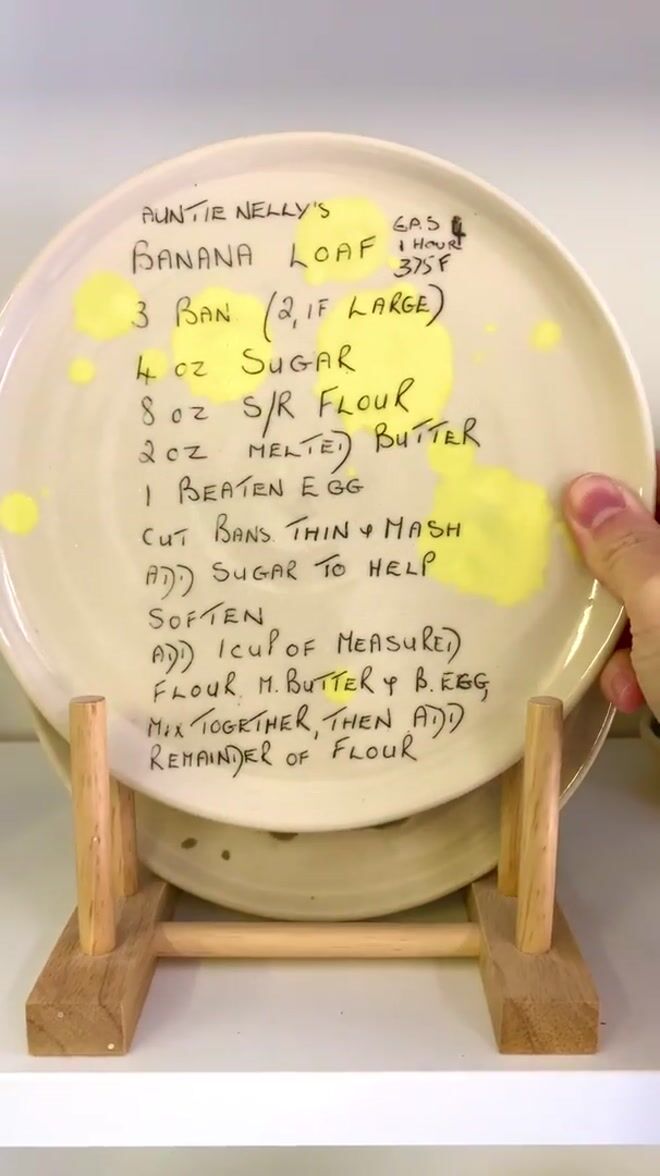 AUNTIE NELLY'S
BANANA LOAF
GAS 4
1 HOUR
375F
3 BAN. (2, IF LARGE)
4 OZ SUGAR
8 OZ S/R FLOUR
2 OZ MELTED BUTTER
1 BEATEN EGG
CUT BANS. THIN & MASH
ADD SUGAR TO HELP
SOFTEN
ADD 1 CUP OF MEASURED
FLOUR, M. BUTTER & B. EGG,
MIX TOGETHER, THEN ADD
REMAINDER OF FLOUR